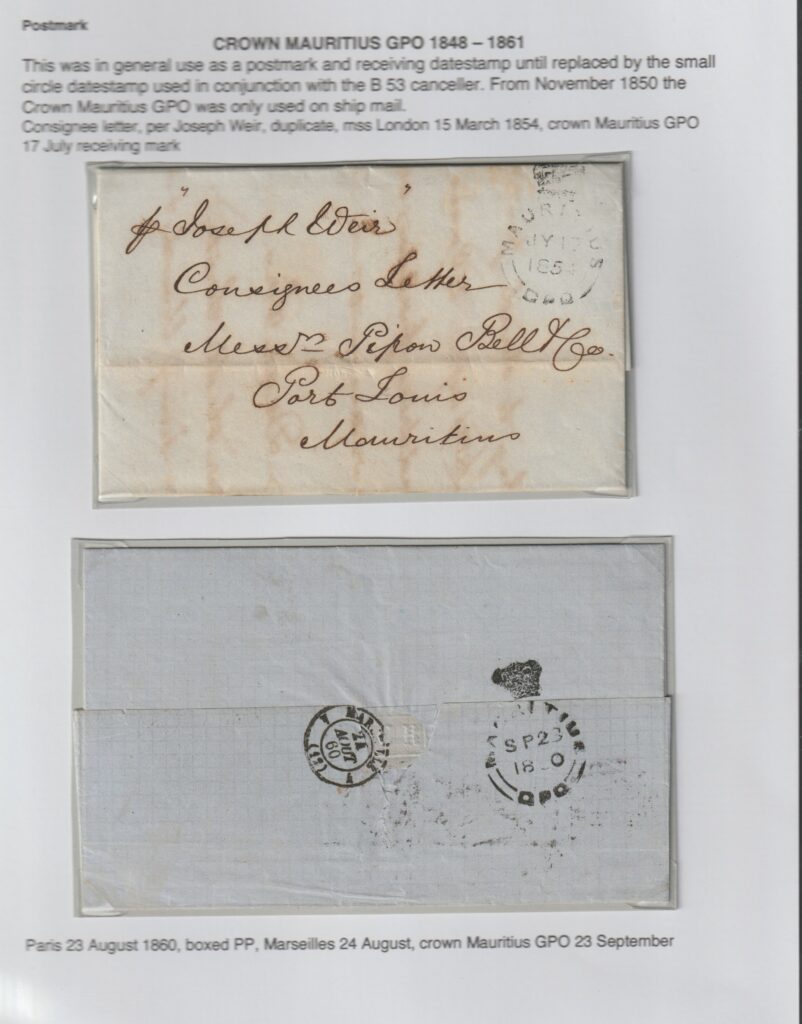 Postmark
CROWN MAURITIUS GPO 1848 – 1861
This was in general use as a postmark and receiving datestamp until replaced by the small
circle datestamp used in conjunction with the B 53 canceller. From November 1850 the
Crown Mauritius GPO was only used on ship mail.
Consignee letter, per Joseph Weir, duplicate, mss London 15 March 1854, crown Mauritius GPO
17 July receiving mark
p "Joseph Weir"
Consignees Letter
Messrs Pipon Bell & Co.
Port Louis
Mauritius
MAURITIUS
JY 17
1854
GPO
MARSEILLE
24
AOUT
60
(12)
MAURITIUS
SP 23
18 0
GPO
Paris 23 August 1860, boxed PP, Marseilles 24 August, crown Mauritius GPO 23 September